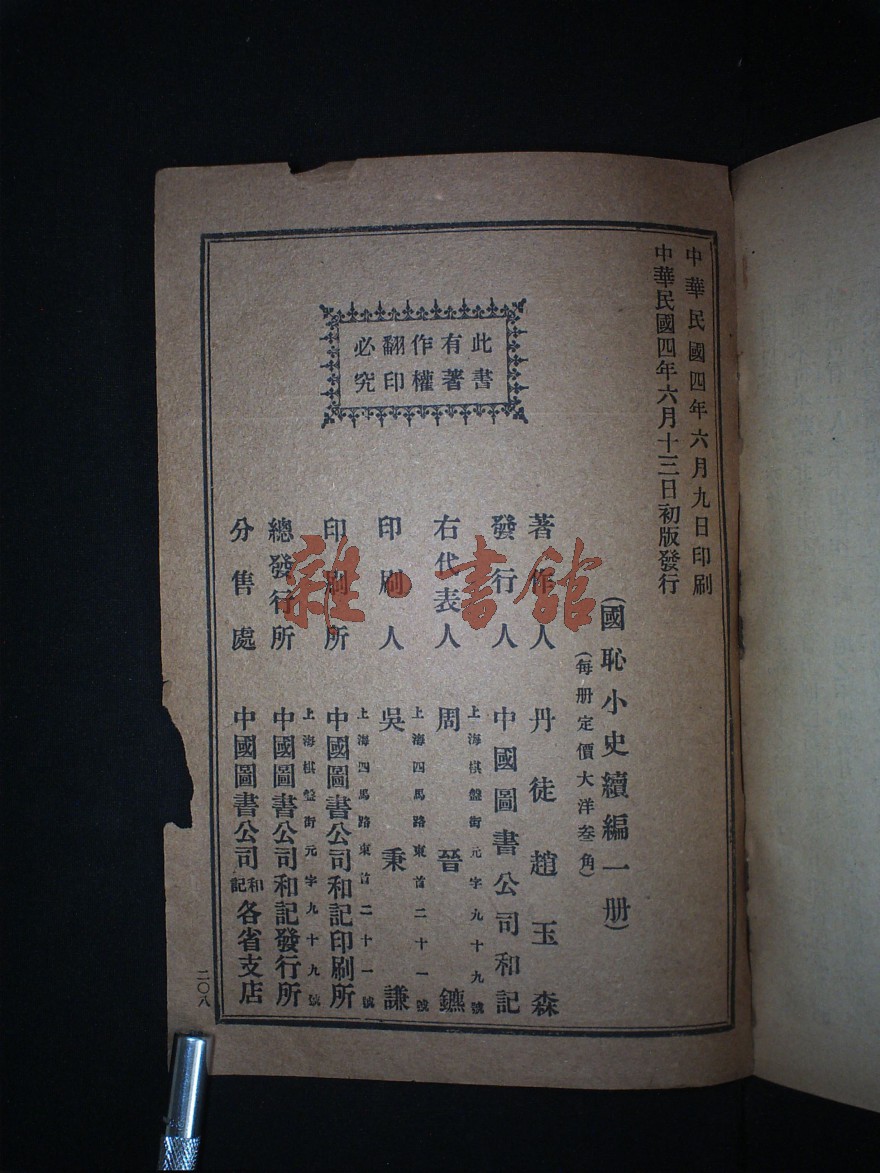 中華民國四年六月九日印刷
中華民國四年六月十三日初版發行
(國恥小史續編一册)
(每册定價大洋叁角)
此書
有著
作權
翻印
必究
著作人 丹徒趙玉森
發行人 中國圖書公司和記
上海棋盤街元字九十九號
右代表人 周晉鑣
上海四馬路東首二十一號
印刷人 吳秉謙
上海四馬路東首二十一號
印刷所 中國圖書公司和記印刷所
上海棋盤街元字九十九號
總發行所 中國圖書公司和記發行所
分售處 中國圖書公司和記各省支店
二〇八
雜·書館